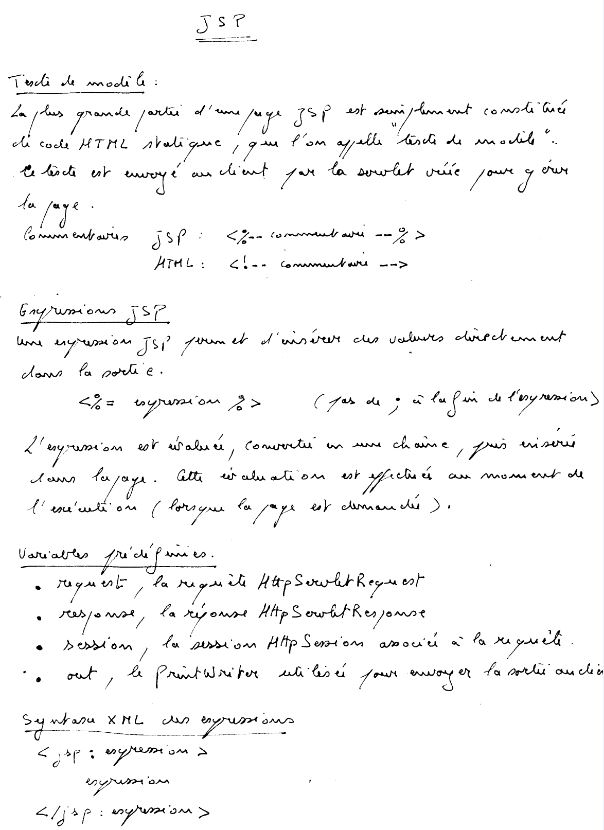 JSP
Texte de modèle :
La plus grande partie d'une page JSP est simplement constituée
de code HTML statique, que l'on appelle "texte de modèle".
Ce texte est envoyé au client par la servlet créée pour gérer
la page.
Commentaires JSP : <%-- commentaire --%>
HTML : <!-- commentaire -->
Expressions JSP
Une expression JSP permet d'insérer des valeurs directement
dans la sortie.
<%= expression %> (pas de ; à la fin de l'expression)
L'expression est évaluée, convertie en une chaîne, puis insérée
dans la page. Cette évaluation est effectuée au moment de
l'exécution (lorsque la page est demandée).
Variables prédéfinies.
• request, la requête HttpServletRequest
• response, la réponse HttpServletResponse
• session, la session HttpSession associée à la requête.
• out, le PrintWriter utilisée pour envoyer la sortie au clie
Syntaxe XML des expressions
<jsp : expression>
expression
</jsp : expression>